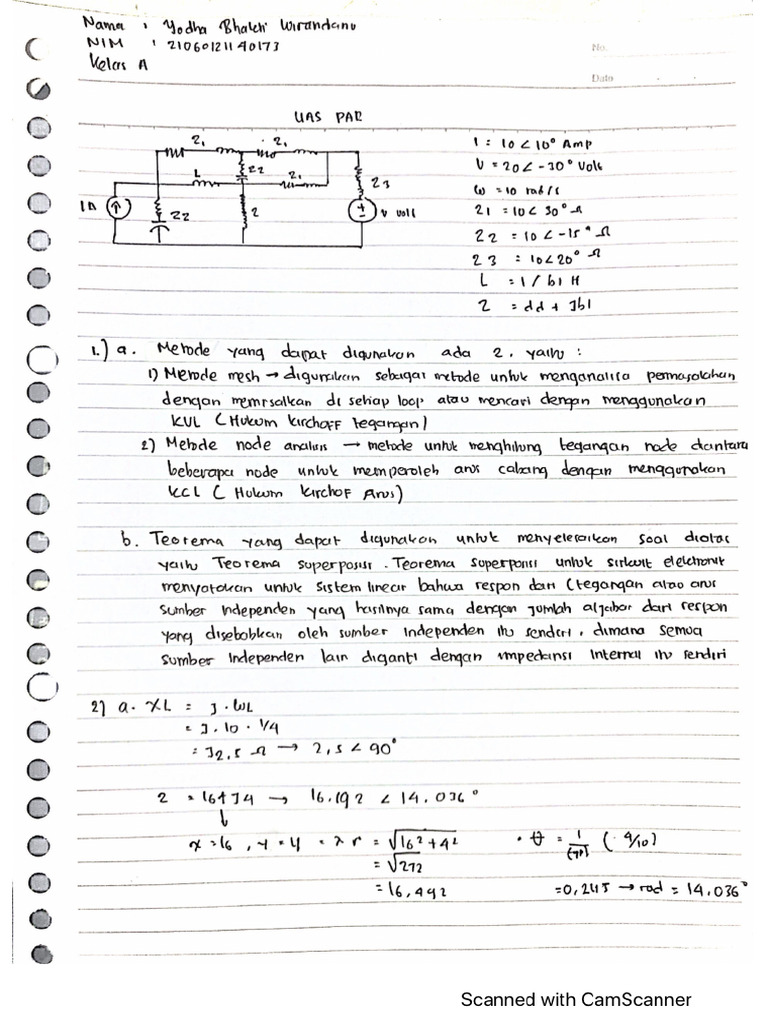 Nama : Yodha Bhakti Wirandanu
NIM : 21060121140173
Kelas A
No.
Date
UAS PAR
I = 10 < 10° Amp
V = 20 < -30° Volt
ω = 10 rad/s
Z1 = 10 < 30° Ω
Z2 = 10 < -15° Ω
Z3 = 10 < 20° Ω
L = 1/b1 H
Z = dd + Jb1
Z1
Z1
L
Z2
Z1
Z3
I A
Z2
Z
V Volt
1.) a. Metode yang dapat digunakan ada 2. yaitu :
1) Metode mesh → digunakan sebagai metode untuk menganalisa permasalahan
dengan memisalkan di setiap loop atau mencari dengan menggunakan
KVL ( Hukum kirchoff tegangan)
2) Metode node analisis → metode untuk menghitung tegangan node diantara
beberapa node untuk memperoleh arus cabang dengan menggunakan
KCL ( Hukum Kirchof Arus)
b. Teorema yang dapat digunakan untuk menyelesaikan soal diatas
yaitu Teorema superposisi. Teorema superposisi untuk sirkuit elektronik
menyatakan untuk sistem linear bahwa respon dari (tegangan atau arus
sumber Independen yang hasilnya sama dengan jumlah aljabar dari respon
yang disebabkan oleh sumber Independen itu sendiri, dimana semua
sumber Independen lain diganti dengan impedansi Internal itu sendiri
2) a. XL = J . ωL
= J . 10 . 1/4
= J2,5 Ω → 2,5 < 90°
Z = 16+J4 → 16.492 < 14.036°
x = 16 , y = 4 = > r = √16² + 4²
= √272
= 16,492
• θ = 1/(tan) ( 4/16)
= 0,245 → rad = 14.036°
Scanned with CamScanner